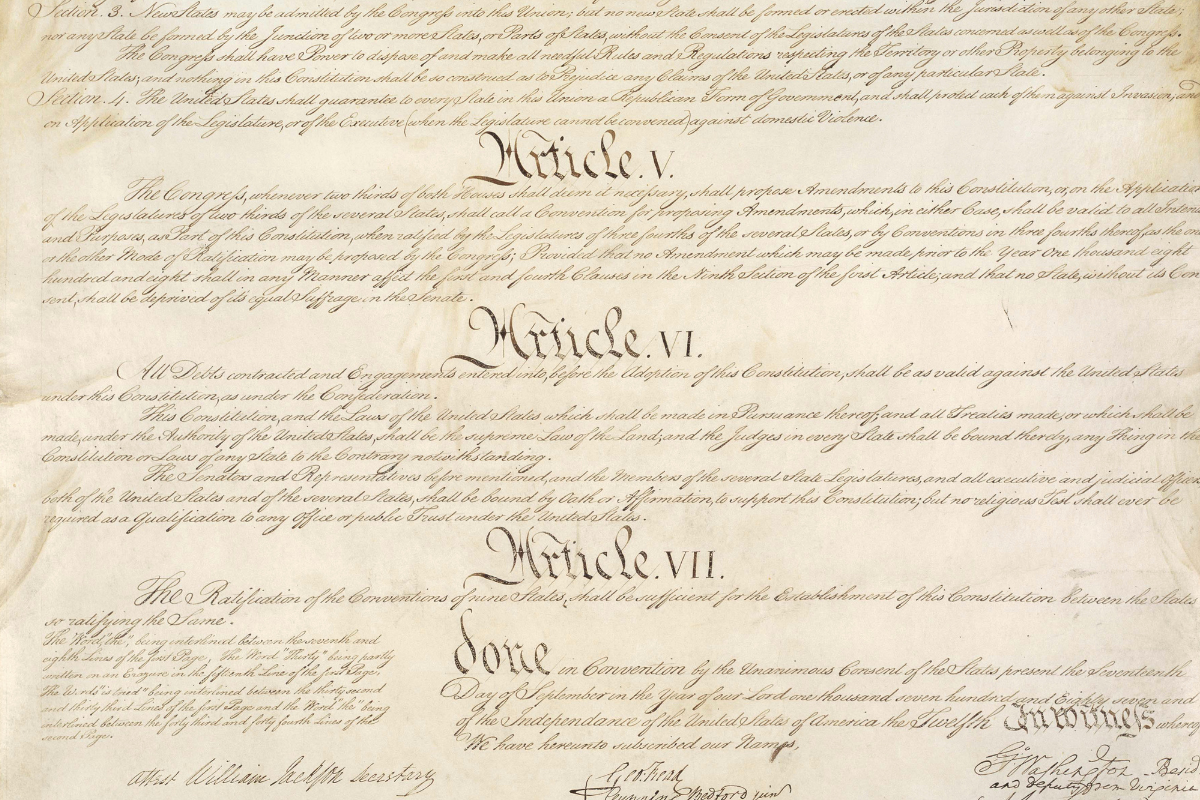 Section. 3. New States may be admitted by the Congress into this Union; but no new State shall be formed or erected within the Jurisdiction of any other State;
nor any State be formed by the Junction of two or more States, or Parts of States, without the Consent of the Legislatures of the States concerned as well as of the Congress.
The Congress shall have Power to dispose of and make all needful Rules and Regulations respecting the Territory or other Property belonging to the
United States; and nothing in this Constitution shall be so construed as to Prejudice any Claims of the United States, or of any particular State.
Section. 4. The United States shall guarantee to every State in this Union a Republican Form of Government, and shall protect each of them against Invasion; and
on Application of the Legislature, or of the Executive (when the Legislature cannot be convened) against domestic Violence.
Article. V.
The Congress, whenever two thirds of both Houses shall deem it necessary, shall propose Amendments to this Constitution, or, on the Application
of the Legislatures of two thirds of the several States, shall call a Convention for proposing Amendments, which, in either Case, shall be valid to all Inten
and Purposes, as Part of this Constitution, when ratified by the Legislatures of three fourths of the several States, or by Conventions in three fourths thereof, as the one
or the other Mode of Ratification may be proposed by the Congress; Provided that no Amendment which may be made prior to the Year One thousand eight
hundred and eight shall in any Manner affect the first and fourth Clauses in the Ninth Section of the first Article; and that no State, without its Con
sent, shall be deprived of its equal Suffrage in the Senate.
Article. VI.
All Debts contracted and Engagements entered into, before the Adoption of this Constitution, shall be as valid against the United States
under this Constitution, as under the Confederation.
This Constitution, and the Laws of the United States which shall be made in Pursuance thereof; and all Treaties made, or which shall be
made, under the Authority of the United States, shall be the supreme Law of the Land; and the Judges in every State shall be bound thereby, any Thing in the
Constitution or Laws of any State to the Contrary notwithstanding.
The Senators and Representatives before mentioned, and the Members of the several State Legislatures, and all executive and judicial Officers,
both of the United States and of the several States, shall be bound by Oath or Affirmation, to support this Constitution; but no religious Test shall ever be
required as a Qualification to any Office or public Trust under the United States.
Article. VII.
The Ratification of the Conventions of nine States, shall be sufficient for the Establishment of this Constitution between the States
so ratifying the Same.
The Word, "the", being interlined between the seventh and
eighth Lines of the first Page, The Word "Thirty" being partly
written on an Erazure in the fifteenth Line of the first Page,
The Words "is tried" being interlined between the thirty second
and thirty third Lines of the first Page and the Word "the" being
interlined between the forty third and forty fourth Lines of the
second Page.
done in Convention by the Unanimous Consent of the States present the Seventeenth
Day of September in the Year of our Lord one thousand seven hundred and Eighty seven and
of the Independance of the United States of America the Twelfth In witness whereof
We have hereunto subscribed our Names,
Attest William Jackson Secretary
Geo: Read
Gunning Bedford jun
Go Washington Presidt
and deputy from Virginia